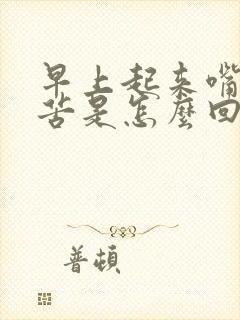 早上起来嘴
苦是怎麼回
普頓